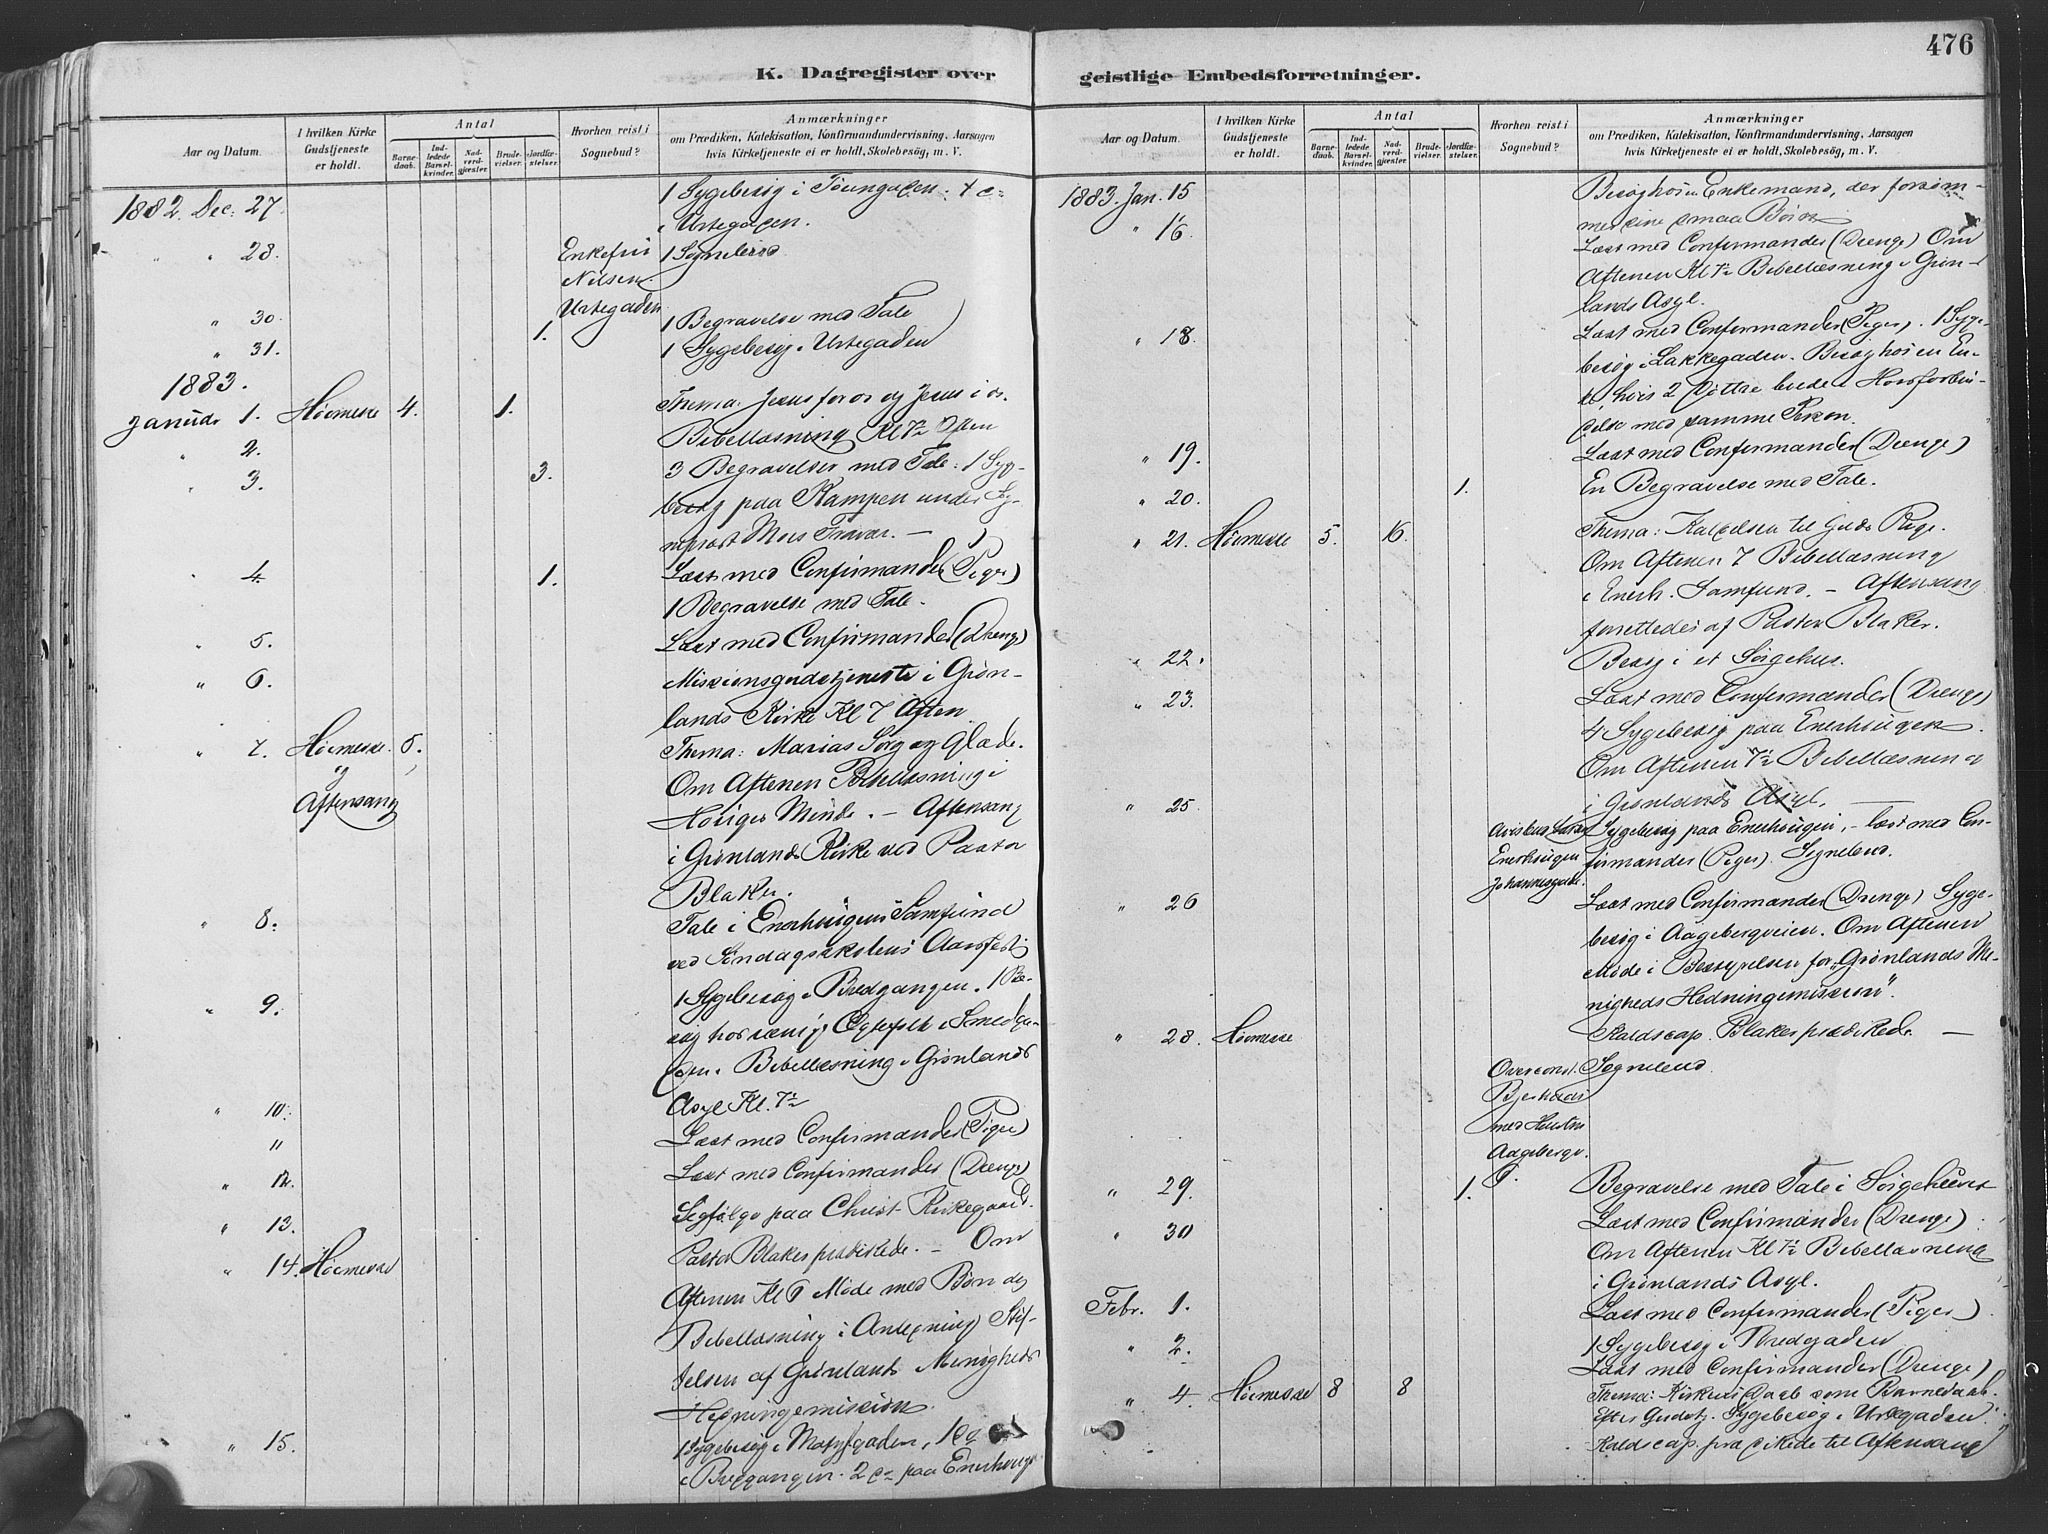 476
K. Dagregister over geistlige Embedsforretninger.
Aar og Datum.
I hvilken Kirke Gudstjeneste er holdt.
Antal
Barnedaab.
Indledede Barselkvinder.
Nadverdgjester.
Brudevielser.
Jordfæstelser.
Hvorhen reist i Sognebud?
Anmærkninger
om Prædiken, Katekisation, Konfirmandundervisning, Aarsagen
hvis Kirketjeneste ei er holdt, Skolebesøg, m. V.
1882. Dec: 27. 1 Sygebesøg i Tøiengaden.
i Urtegaden.
" " 28. Enkefru 1 Sognebud
Nilsen
Urtegaden
" 30. 1. 1 Begravelse med Tale
" 31. 1 Sygebesøg i Urtegaden
1883.
Januar 1. Høimesse 4. 1. Thema: Jesus for os og Jesus i os.
Bibellæsning Kl 7½ Aften
" 2. 3. 3 Begravelser med Tale: 1 Syg-
" 3. besøg paa Kampen under Sy-
Fravær. —
" 4. 1. Læst med Confirmander (Piger)
1 Begravelse med Tale.
" 5. Læst med Confirmander (Drenge)
" 6. Missionsgudstjeneste i Grøn-
lands Kirke Kl 7 Aften
" 7. Høimesse Thema: Marias Sorg og Glæde.
og Om Aftenen Bibellæsning i
Aftensang Minde. — Aftensang
i Grønlands Kirke ved Pastor
Blaker.
" 8. Tale i Enerhaugens Samfund
ved Søndagsskolens Aarsfest
1 Sygebesøg i Bredgangen. 1 Be-
" 9. søg hos Ægtefolk i Smedga-
den. Bibellæsning i Grønlands
Asyl Kl. 7½
" 10. Læst med Confirmander (Piger)
" 12. Læst med Confirmander (Drenge)
paa Christ Kirkegaard.
" 13. Pastor Blaker prædikede. — Om
" 14. Høimesse Aftenen Kl 6 Møde med Børn og
Bibellæsning i Stif-
telsen af Grønlands Menigheds
Hedningemission
" 15. 1 Sygebesøg i
i Bredgangen. 2 paa Enerhaug
Aar og Datum.
I hvilken Kirke Gudstjeneste er holdt.
Antal
Barnedaab.
Indledede Barselkvinder.
Nadverdgjester.
Brudevielser.
Jordfæstelser.
Hvorhen reist i Sognebud?
Anmærkninger
om Prædiken, Katekisation, Konfirmandundervisning, Aarsagen
hvis Kirketjeneste ei er holdt, Skolebesøg, m. V.
1883. Jan. 15 Besøg hos en Enkemand, der forsøm-
mer sine smaa Børn
" 16. Læst med Confirmander (Drenge) Om
Aftenen Kl 7½ Bibellæsning i Grøn-
lands Asyl.
" 18. Læst med Confirmander (Piger). 1 Syge-
besøg i Lakkegaden. Besøg hos en En-
ke, hvis 2 Døttre begge i Horsforbin-
delse med samme Person.
" 19. Læst med Confirmander (Drenge)
" 20. 1. En Begravelse med Tale.
" 21. Høimesse 5. 16. Thema: Kaldelsen til Guds Rige.
Om Aftenen 7 Bibellæsning
i Enerh. Samfund. — Aftensang
forrettedes af Pastor Blaker.
" 22. Besøg i et Sørgehus.
" 23. Læst med Confirmander (Drenge)
4 Sygebesøg paa Enerhaugen
Om Aftenen 7½ Bibellæsning
i Grønlands Asyl.
" 25. Sygebesøg paa Enerhaugen, — læst med Con-
Enerhaugen firmander (Piger). Sognebud.
Johannesgade.
" 26 Læst med Confirmander (Drenge) Syge-
besøg i Aagebergveien. Om Aftenen
Møde i Bestyrelsen for „Grønlands Me-
nigheds Hedningemission".
" 28. Høimesse Kaldscap. Blaker prædikede. —
Sognebud.
med Hustru
Aagebergv.
" 29. 1. 9. Begravelse med Tale i Sørgehuset
" 30 Læst med Confirmander (Drenge)
Om Aftenen Kl 7½ Bibellæsning
i Grønlands Asyl.
Febr. 1. Læst med Confirmander (Piger)
1 Sygebesøg i Bredgaden
" 2. Læst med Confirmander (Drenge)
" 4. Høimesse 8 8 Thema: Kirkens Daab som Barnedaab.
Efter Gudstj. Sygebesøg i Urtegaden
Kaldscap. prædikede til Aftensang